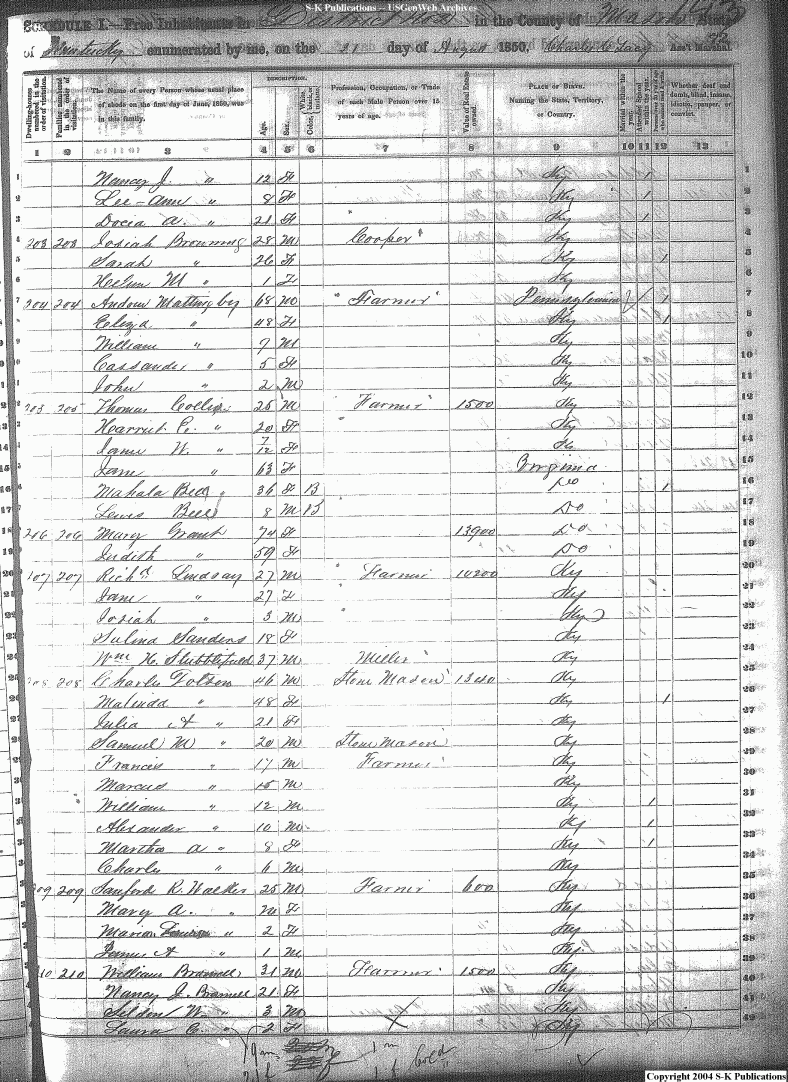 S-K Publications -- USGenWeb Archives
SCHEDULE I.—Free Inhabitants in District No in the County of Mason State
of Kentucky enumerated by me, on the 21 day of August 1850. Charles C Lacy Ass't Marshal.
Dwelling-houses numbered in the order of visitation.
Families numbered in the order of visitation.
The Name of every Person whose usual place of abode on the first day of June, 1850, was in this family.
DESCRIPTION.
Age.
Sex.
Color, White, black, or mulatto.
Profession, Occupation, or Trade of each Male Person over 15 years of age.
Value of Real Estate owned.
PLACE OF BIRTH. Naming the State, Territory, or Country.
Married within the year.
Attended School within the year.
Whether deaf and dumb, blind, insane, idiotic, pauper, or convict.
1 2 3 4 5 6 7 8 9 10 11 12 13
Nancy J. " 12 F Ky 1
Lee-Ann " 8 F Ky 1
Docia A. " 21 F " Ky 1
203 203 Josiah Browning 28 M Cooper Ky
Sarah " 26 F Ky 1
Helen M " 1 F Ky
204 204 Andrew Mattingley 68 M "Farmer" Pennsylvania 1
Eliza " 48 F Ky 1
William " 7 M Ky
Cassander " 5 F Ky
John " 2 M Ky
205 205 Thomas Collis 25 M Farmer 1500 Ky
Harriet C. " 20 F Ky
Jane W. " 7/12 F Ky
Jane " 63 F Virginia
Mahala Bell " 36 F B Do 1
Lewis Bell 8 M B Do
206 206 Mary Grant 74 F 13900 Do
Judith " 59 F Do
207 207 Richd Lindsay 27 M Farmer 10200 Ky
Jane " 27 F Ky
Josiah " 3 M Ky
Salina Sanders 18 F Ky
Wm H. Stubblefield 37 M Miller Ky
208 208 Charles Tolson 46 M Stone Mason 1340 Ky
Malinda " 48 F Ky 1
Julia A " 21 F Ky
Samuel M " 20 M Stone Mason Ky
Francis " 17 M Farmer Ky
Marcus " 15 M Ky
William " 12 M Ky 1
Alexander " 10 M Ky 1
Martha A " 8 F Ky 1
Charles " 6 M Ky
209 209 Sanford R. Walker 25 M Farmer 600 Ky
Mary A. " F Ky
Maria " 2 F Ky
James A " 1 M Ky
210 210 William Bramell 31 M Farmer 1500 Ky
Nancy J. Bramell 21 F Ky
Seldon W. " 3 M Ky
Laura C. " 2 F Ky
19 m 1 m
21 f 1 f Cold
Copyright 2004 S-K Publications